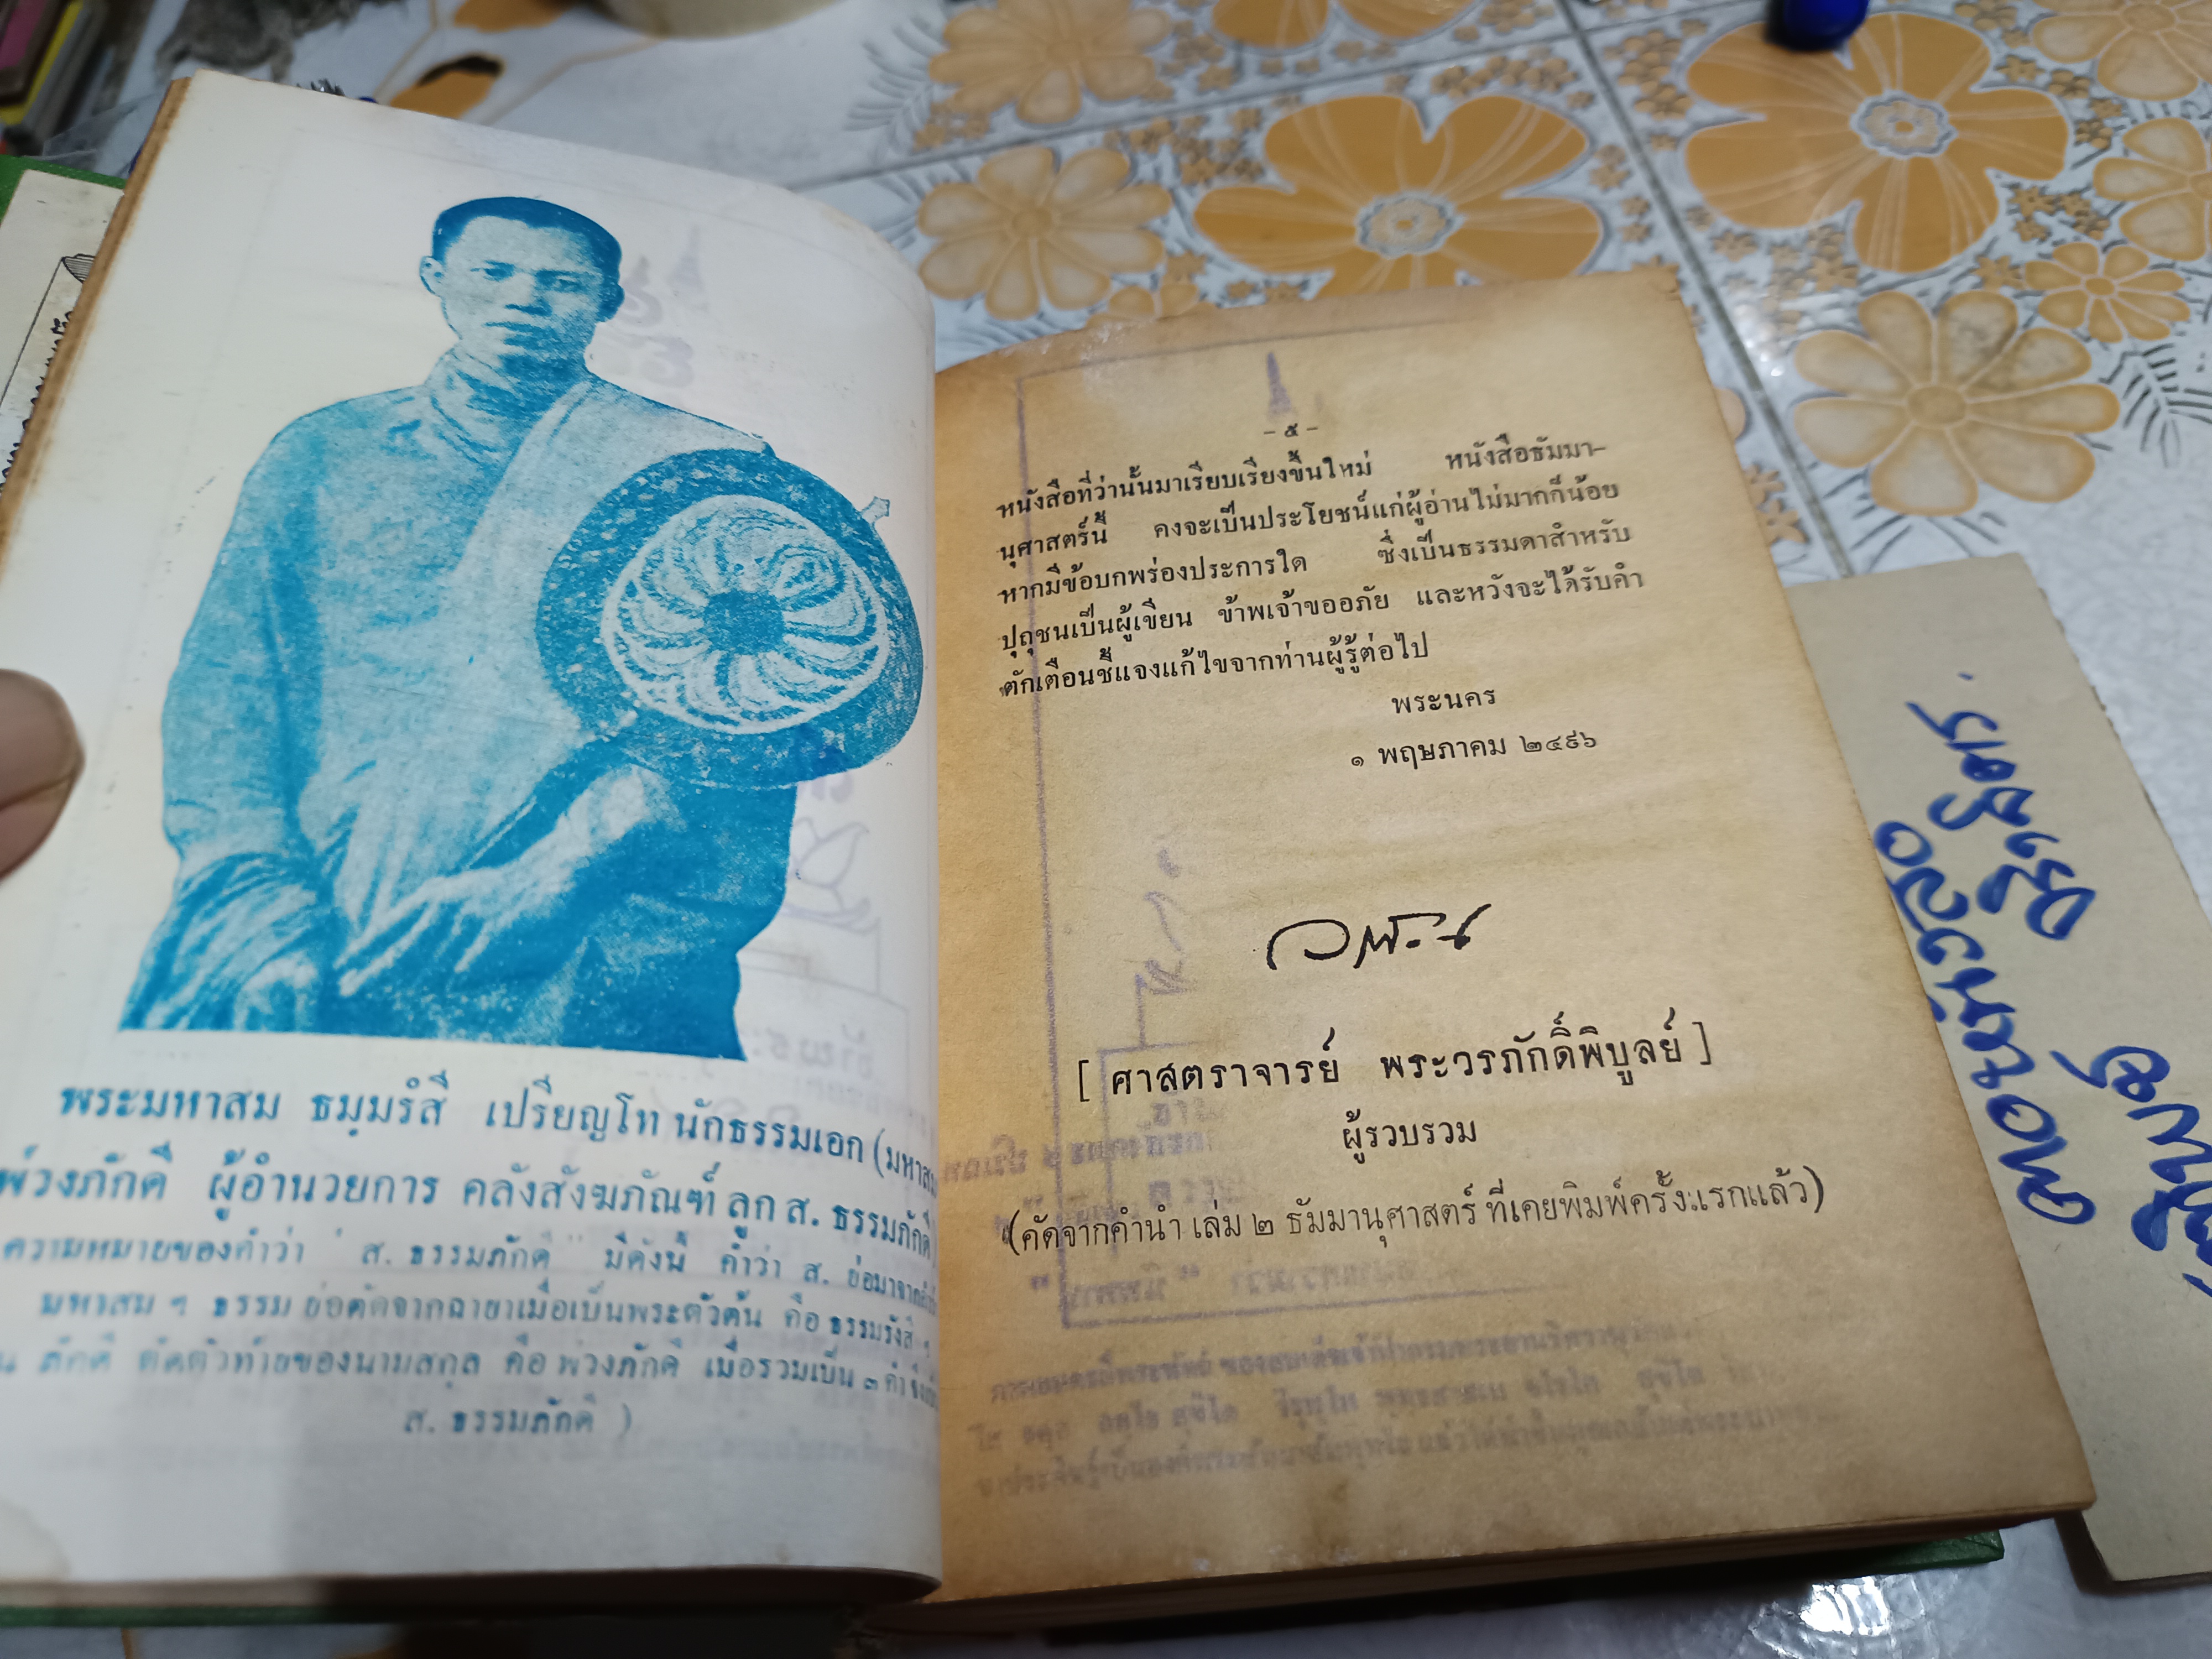 พระมหาสม ธมฺมรํสี เปรียญโท นักธรรมเอก (มหาสม
พ่วงภักดี ผู้อำนวยการ คลังสังฆภัณฑ์ ลูก ส. ธรรมภักดี
ความหมายของคำว่า " ส. ธรรมภักดี " มีดังนี้ คำว่า ส. ย่อมาจาก
มหาสม ฯ ธรรม ย่อตัดจากฉายาเมื่อเป็นพระตัวต้น คือ ธรรมรังสี
ภักดี ตัดตัวท้ายของนามสกุล คือ พ่วงภักดี เมื่อรวมเป็น ๓ คำ
ส. ธรรมภักดี )
- ๕ -
หนังสือที่ว่านั้นมาเรียบเรียงขึ้นใหม่ หนังสือธัมมา-
นุศาสตร์นี้ คงจะเป็นประโยชน์แก่ผู้อ่านไม่มากก็น้อย
หากมีข้อบกพร่องประการใด ซึ่งเป็นธรรมดาสำหรับ
ปุถุชนเป็นผู้เขียน ข้าพเจ้าขออภัย และหวังจะได้รับคำ
ตักเตือนชี้แจงแก้ไขจากท่านผู้รู้ต่อไป
พระนคร
๑ พฤษภาคม ๒๔๙๖
[ ศาสตราจารย์ พระวรภักดิ์พิบูลย์ ]
ผู้รวบรวม
(คัดจากคำนำ เล่ม ๒ ธัมมานุศาสตร์ ที่เคยพิมพ์ครั้งแรกแล้ว)